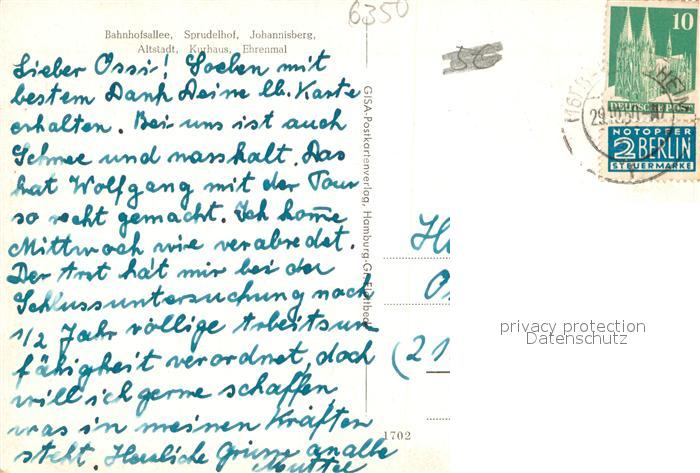 6350
Bahnhofsallee, Sprudelhof, Johannisberg,
Altstadt, Kurhaus, Ehrenmal
Lieber Ossi! Soeben mit
bestem Dank Deine lb. Karte
erhalten. Bei uns ist auch
Schnee und nasskalt. Das
hat Wolfgang mit der Tour
so recht gemacht. Ich kom̄e
Mittwoch wie verabredet.
Der Arzt hat mir bei der
Schlussuntersuchung noch
1/2 Jahr völlige Arbeitsun
fähigkeit verordnet, doch
will ich gerne schaffen,
was in meinen Kräften
steht. Herzliche Grüsse an alle
Mutti
GISA-Postkartenverlag, Hamburg-Gr. Flottbek
1702
10
DEUTSCHE POST
NOTOPFER
2 BERLIN
STEUERMARKE
29.10.51
(21
privacy protection
Datenschutz